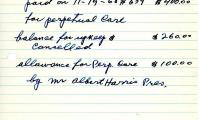 paid on 11-19-68 # 639 $400.00
for perpetual care
balance for upkeep $ 260.00
cancelled
allowance for Perp. Care $ 100.00
by Mr Albert Harris Pres.